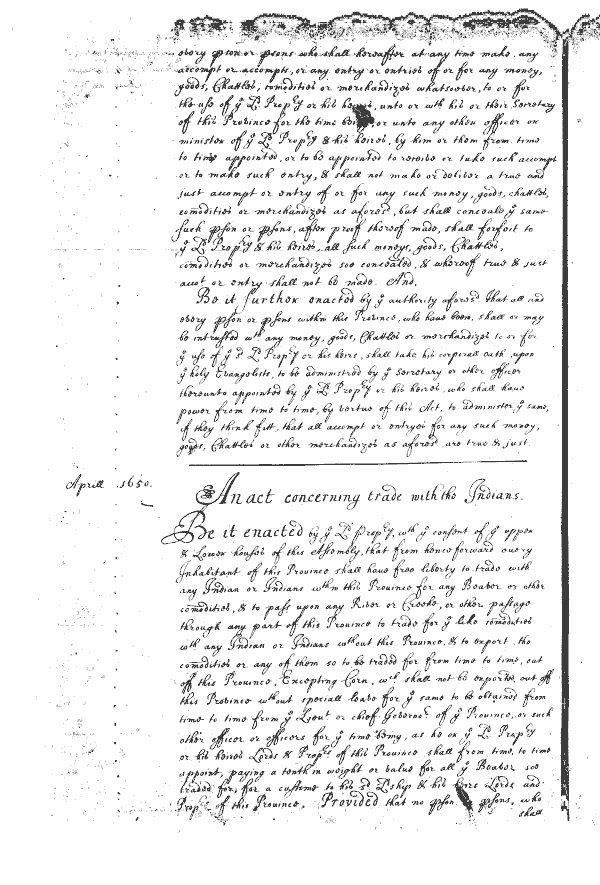 every pson or psons who shall hereafter at any time make any
accompt or accompts, or any entry or entries of or for any money,
goods, Chattles, comodities or merchandizes whatsoever, to or for
the use of yͤ Lᵈ Propʳʸ or his heires, unto or wth his or their Secretary
of this Province for the time being, or unto any other officer or
minister of yͤ Lᵈ Propʳʸ & his heires, by him or them from time
to time appointed, or to be appointed to receive or take such accompt
or to make such entry, & shall not make or deliver a true and
just accompt or entry of or for any such money, goods, chattles,
comodities or merchandizes as aforesᵈ, but shall conceale yͤ same
such pson or psons, after proof thereof made, shall forfeit to
yͤ Lᵈ Propʳʸ & his heires, all such moneys, goods, Chattles,
comodities or merchandizes soe concealed, & whereof true & just
accoᵗ or entry shall not be made. And,
Be it further enacted by yͤ authority aforesᵈ that all and
every pson or psons within this Province, who have been, shall or may
be intrusted wᵗʰ any money, goods, Chattles or merchandizes to or for
yͤ use of yͤ sᵈ Lᵈ Propʳʸ or his heirs, shall take his corporall oath upon
yͤ holy Evangelists, to be administred by yͤ Secretary or other officer
thereunto appointed by yͤ Lᵈ Propʳʸ or his heires, who shall have
power from time to time, by vertue of this Act, to administer yͤ same,
if they think fitt, that all accompt or entryes for any such money,
goods, Chattles or other merchandizes as aforesᵈ are true & just.
Aprill 1650.
An act concerning trade with the Indians.
Be it enacted by yͤ Lᵈ Propʳʸ, wth yͤ consent of yͤ upper
& Lower houses of this Assembly, that from henceforward every
Inhabitant of this Province shall have free liberty to trade with
any Indian or Indians wthin this Province for any Beaver or other
comodities, & to pass upon any River or Creeke, or other passage
through any part of this Province to trade for yͤ like comodities
wth any Indian or Indians wthout this Province, & to export the
comodities or any of them so to be traded for from time to time, out
off this Province, Excepting Corn, wᶜʰ shall not be exported out off
this Province wthout speciall leave for yͤ same to be obtained from
time to time from yͤ Lieuᵗ or chief Governoʳ of yͤ Province, or such
other officer or officers for yͤ time being, as he or yͤ Lᵈ Propʳʸ
or his heires Lords & Propʳˢ of this Province shall from time to time
appoint, paying a tenth in weight or value for all yͤ Beaver soe
traded for, for a custome to his sᵈ Lᵈship & his heires Lords and
Propʳˢ of this Province. Provided that no pson or psons, who
shall